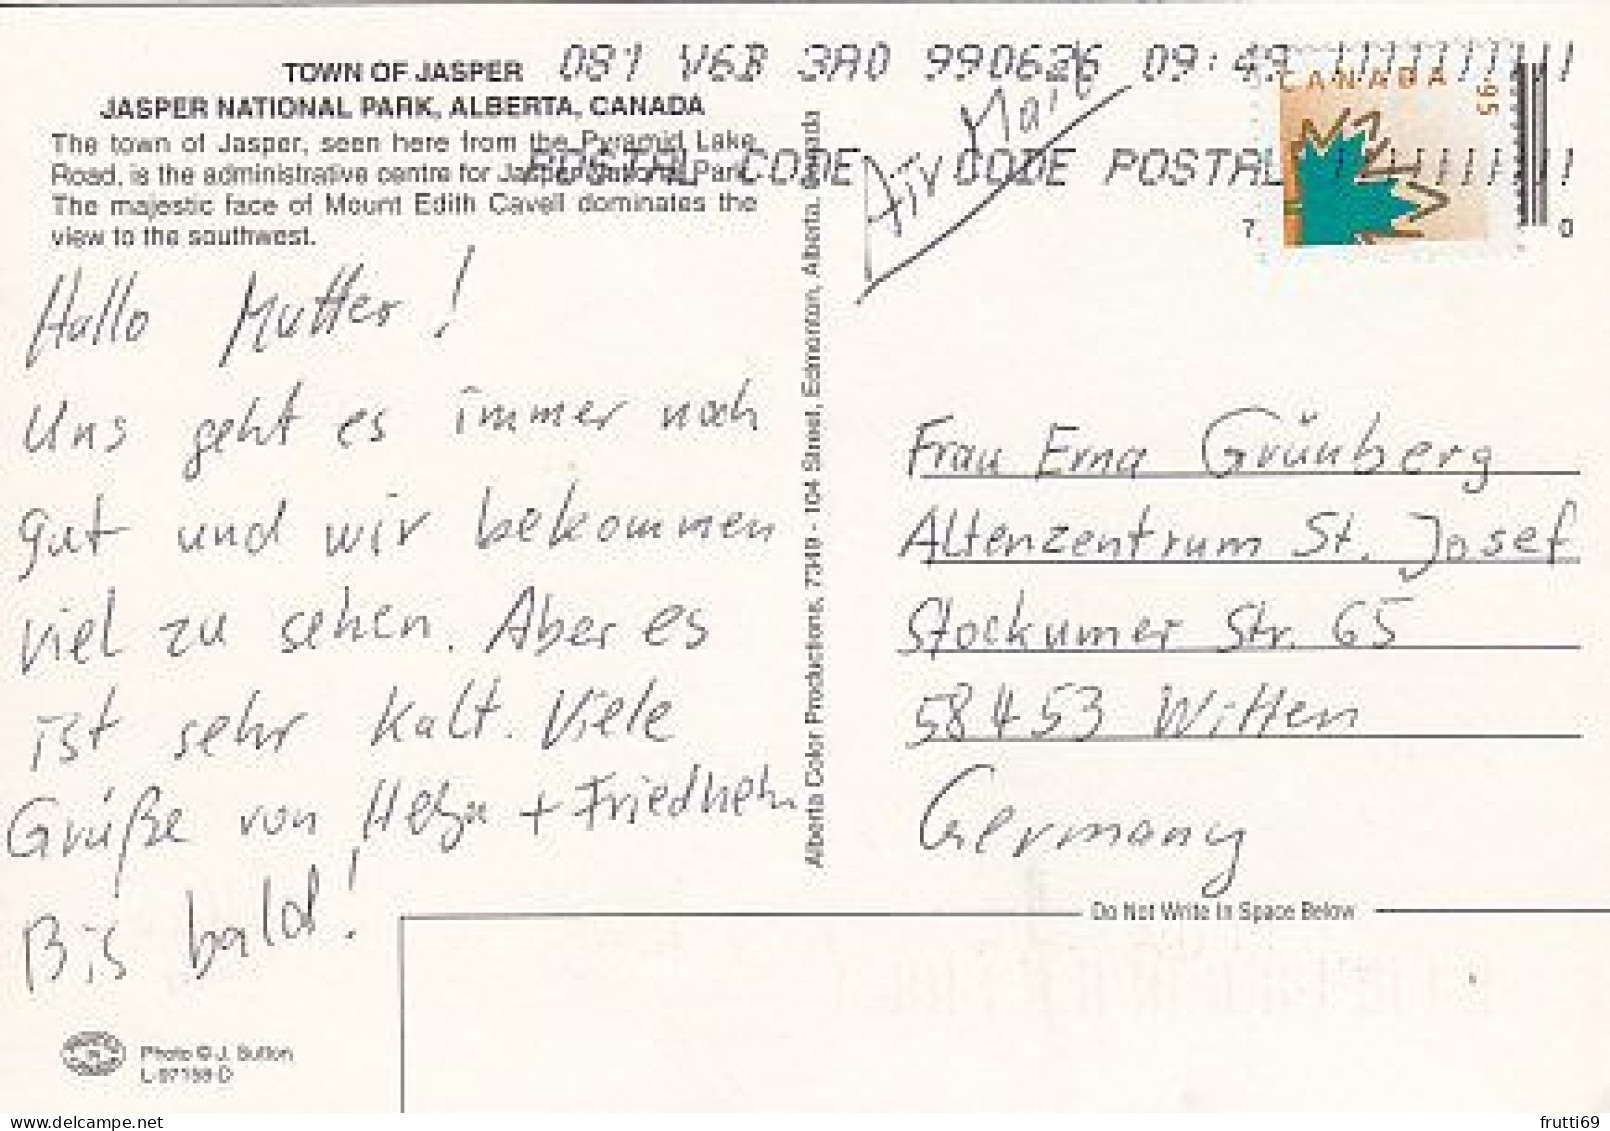 TOWN OF JASPER
JASPER NATIONAL PARK, ALBERTA, CANADA
The town of Jasper, seen here from the Pyramid Lake
Road, is the administrative centre for Jasper National Park.
The majestic face of Mount Edith Cavell dominates the
view to the southwest.
081 V6B 3A0 990626 09:49
POSTAL CODE CODE POSTAL
CANADA .95
7 0
Air Mail
Hallo Mutter!
Uns geht es immer noch
gut und wir bekommen
viel zu sehen. Aber es
ist sehr kalt. Viele
Grüße von Helga + Friedhelm
Bis bald!
Alberta Color Productions, 7349 - 104 Street, Edmonton, Alberta, Canada
Frau Erna Grünberg
Altenzentrum St. Josef
Stockumer Str. 65
58453 Witten
Germany
Do Not Write In Space Below
Photo © J. Sutton
L-97159-D
www.delcampe.net
frutti69